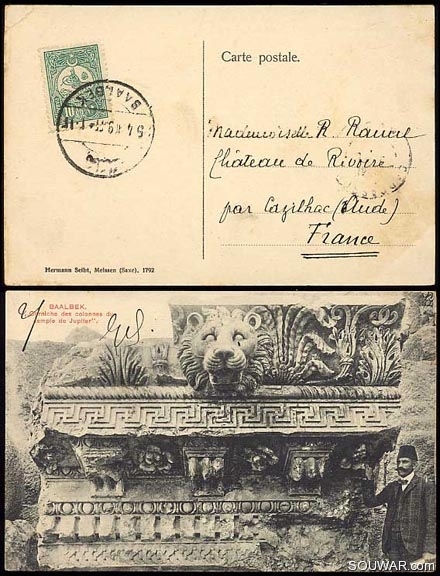 Carte postale.
BAALBEK
5 4 09
Mademoiselle R.
Château de Rivoire
par Cazilhac (Aude)
France
Hermann Seibt, Meissen (Saxe). 1792
BAALBEK.
"Corniche des colonnes du
temple de Jupiter".
SOUWAR.com